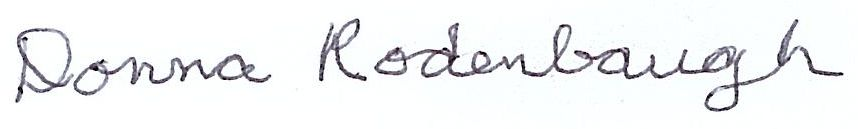 Donna Rodenbaugh